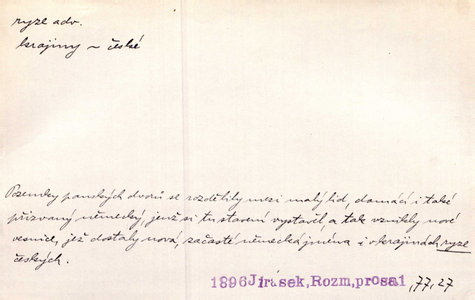 ryze adv.
krajiny ~ české
Pozemky panských dvorů se rozdělily mezi malý lid, domácí i také
přizvaný německý, jenž si tu stavení vystavil, a tak vznikly nové
vesnice, jež dostaly nová, začasté německá jména i v krajinách ryze
českých.
1896 Jirásek, Rozm, prosa 1, 77, 27